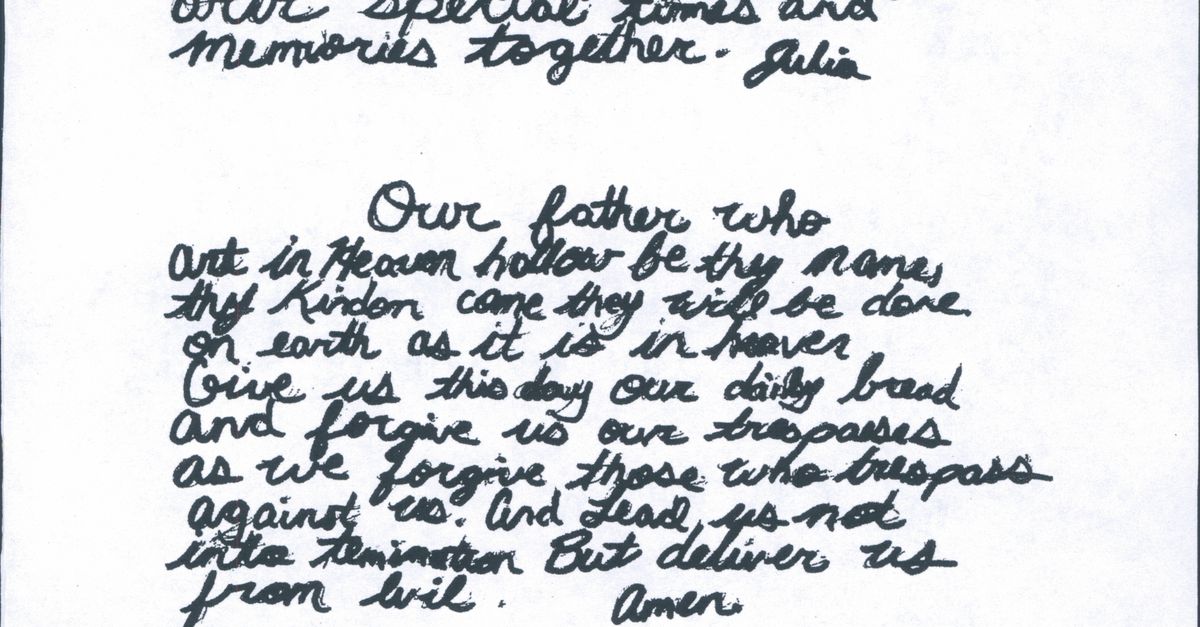 our special times and
memories together. Julia
Our father who
art in Heaven hallow be thy name,
thy Kindon come they will be done
on earth as it is in heaven
Give us this day our daily bread
and forgive us our trespasses
as we forgive those who trespass
against us. And Lead us not
into But deliver us
from evil. Amen.